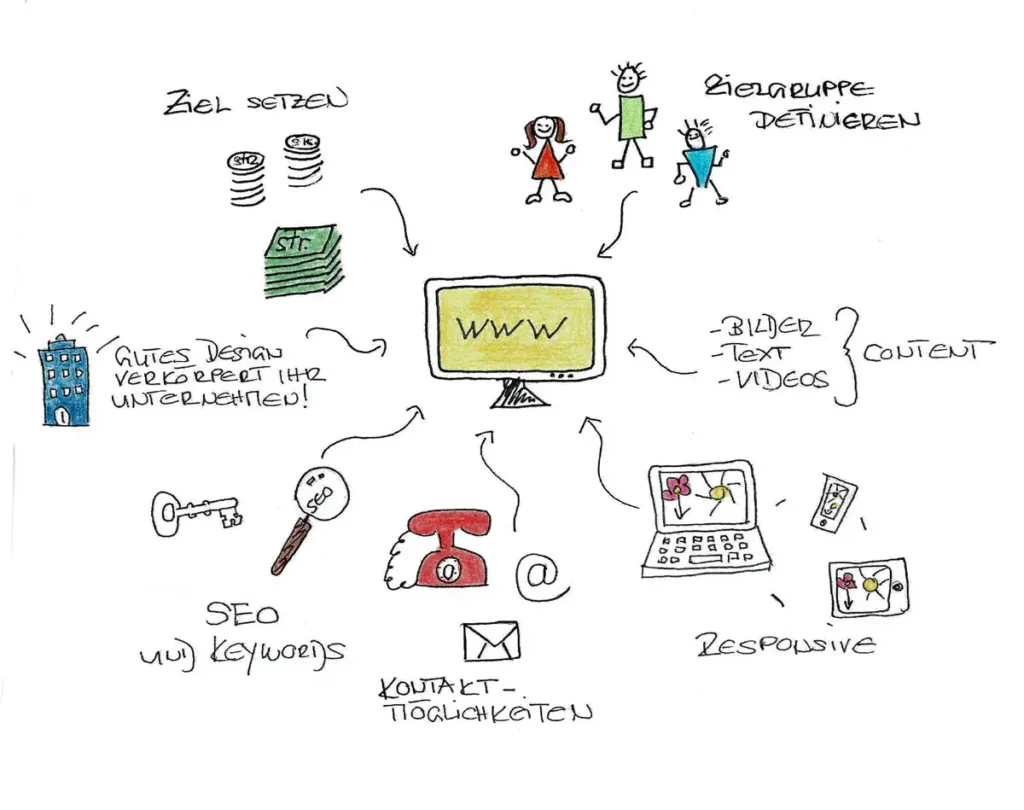 ZIEL SETZEN
ZIELGRUPPE
DEFINIEREN
Sfr.
WWW
GUTES DESIGN
VERKÖRPERT IHR
UNTERNEHMEN!
- BILDER
- TEXT
- VIDEOS
CONTENT
SEO
SEO
UND KEYWORDS
@
KONTAKT-
MÖGLICHKEITEN
RESPONSIVE